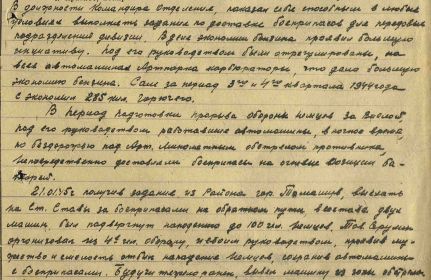 В должности Командира Отделения, показал себя способным в любых
условиях выполнять задания по доставке боеприпасов для передовых
подразделений дивизии. В деле экономии бензина проявил большую
инициативу. Под его руководством были отрегулированы, на
всех автомашинах Артпарка карбюраторы, что дало большую
экономию бензина. Сам за период 3го и 4го квартала 1944 года
сэкономил 285 кил. горючего.
В период подготовки прорыва обороны немцев за Вислой,
под его руководством работавшие автомашины, в ночное время,
по бездорожью под Арт. Минометным обстрелом противника,
непосредственно доставляли боеприпасы на огневые позиции ба-
тарей.
21.01.45г получив задание из Района гор. Томашув, выехать
на ст. Ставы за боеприпасами на обратном пути, в составе двух
машин, был подвергнут нападению до 100 чел. немцев. Тов.
организовал из 4х чел. оборону, и своим руководством, проявив му-
жество и смелость отбил нападение немцев, сохранив автомашины
с боеприпасами. Будучи тяжело ранен, вывел машину из зоны обстрела,